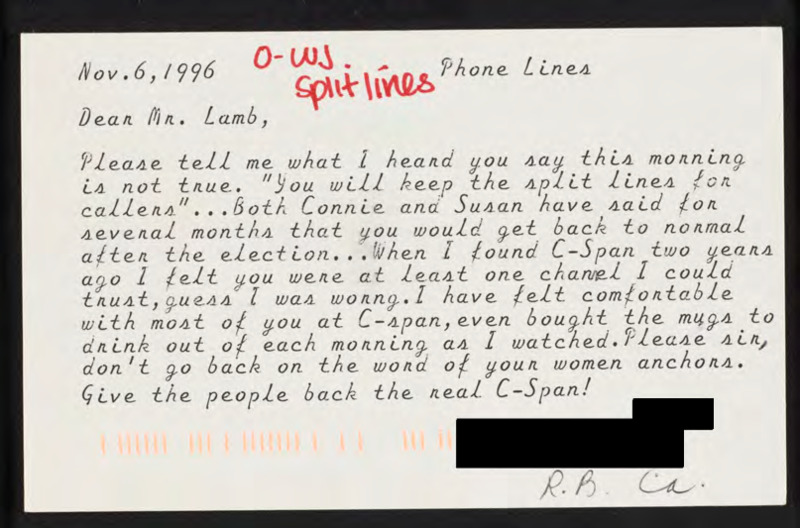 Nov.6,1996 O-WJ Phone Lines
split lines
Dear Mr. Lamb,
Please tell me what I heard you say this morning
is not true. "You will keep the split lines for
callers"...Both Connie and Susan have said for
several months that you would get back to normal
after the election...When I found C-Span two years
ago I felt you were at least one channel I could
trust,guess I was worng.I have felt comfortable
with most of you at C-span,even bought the mugs to
drink out of each morning as I watched.Please sir,
don't go back on the word of your women anchors.
Give the people back the real C-Span!
R.B. Ca.